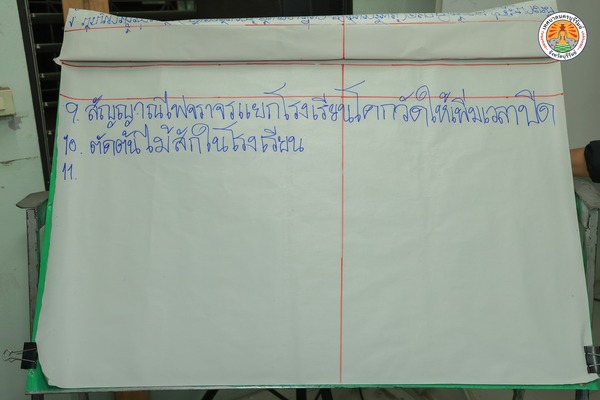 9. สัญญาณไฟจราจรแยกโรงเรียนโคกวัดให้เพิ่มเวลาปิด
10. ตัดต้นไม้สักในโรงเรียน
11.